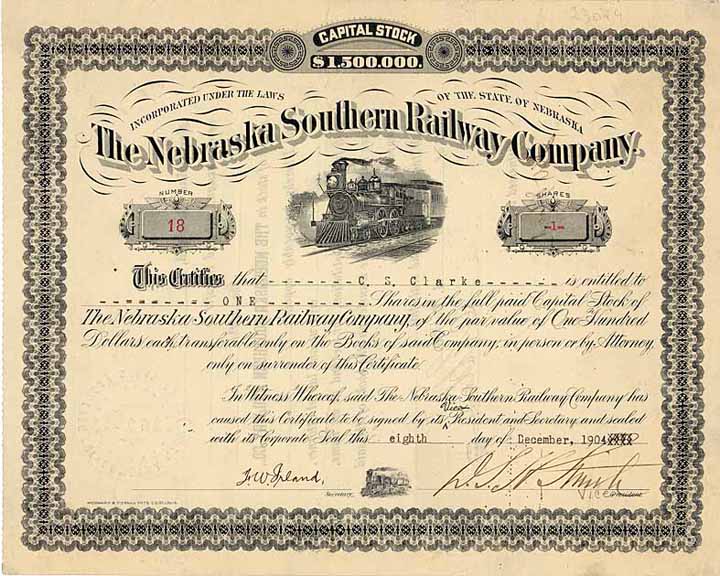 CAPITAL STOCK
$1,500,000.
INCORPORATED UNDER THE LAWS OF THE STATE OF NEBRASKA
The Nebraska Southern Railway Company.
NUMBER
18
SHARES
-1-
This Certifies that - - - - - - - C. S. Clarke - - - - - - is entitled to
- - - - - - - - - ONE - - - - - - - - - - Shares in the full paid Capital Stock of
The Nebraska Southern Railway Company, of the par value of One Hundred
Dollars each, transferable only on the Books of said Company, in person or by Attorney,
only on surrender of this Certificate.
In Witness Whereof, said The Nebraska Southern Railway Company has
Vice
caused this Certificate to be signed by its President and Secretary, and sealed
with its Corporate Seal this eighth day of December, 1904
Secretary.
Vice President